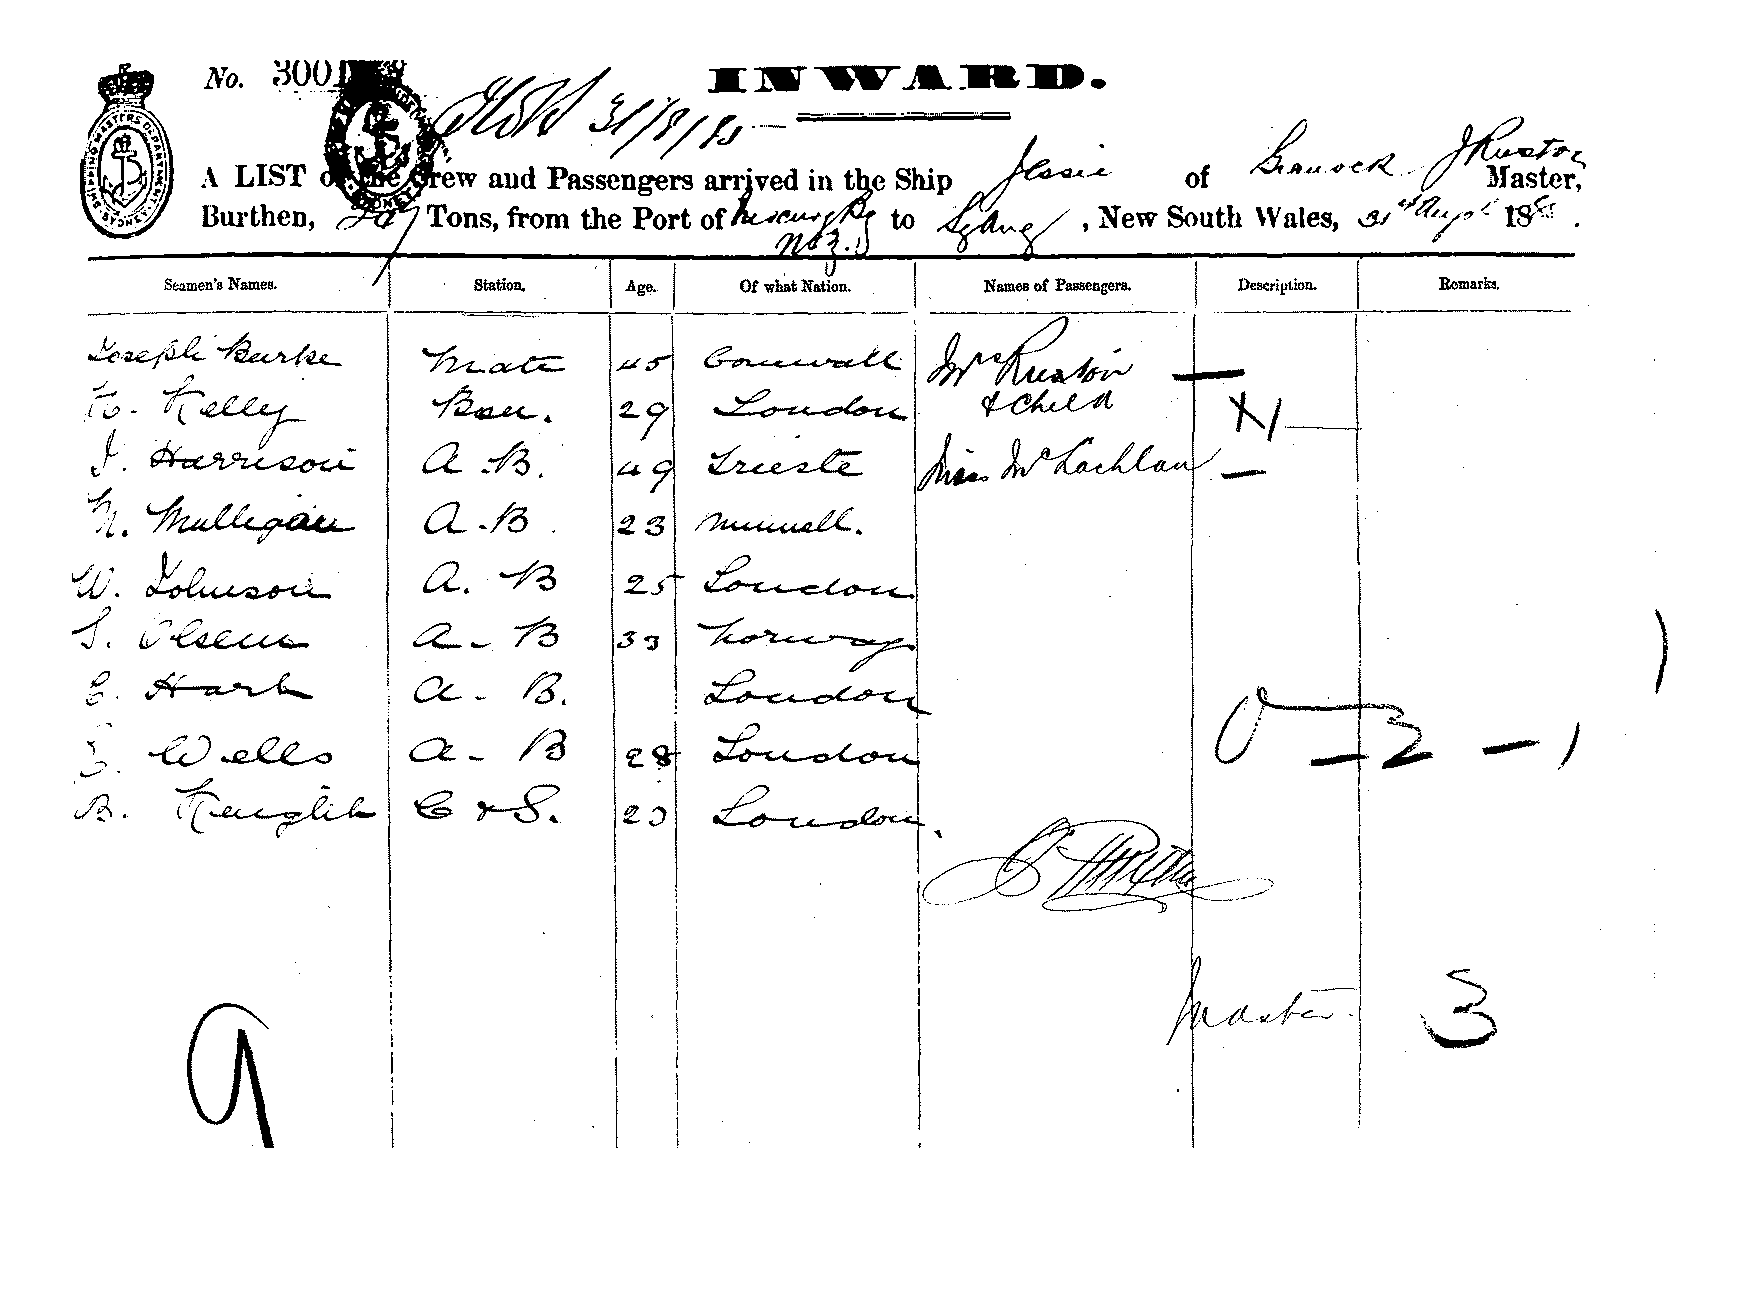 No. 3001
INWARD.
31/8/85
A LIST of the Crew and Passengers arrived in the Ship Jessie of Greenock J Ruston Master,
Burthen, Tons, from the Port of to Sydney, New South Wales, 31st Augt 188
N.Z.
Seamen's Names. Station. Age. Of what Nation. Names of Passengers. Description. Remarks.
Joseph Burke Mate 45 Cornwall Mrs Ruston —
Kelly Bsn. 29 London & Child X/
J. Harrison A.B. 49 Trieste Miss McLachlan —
N. Mulligan A.B 23
W. Johnson A.B 25 London
S. Olsen A-B 33 Norway
E. Hart A-B. London
Wells A-B 28 London 0 — 2 — 1
B. C & S. 23 London.
Master
9
3